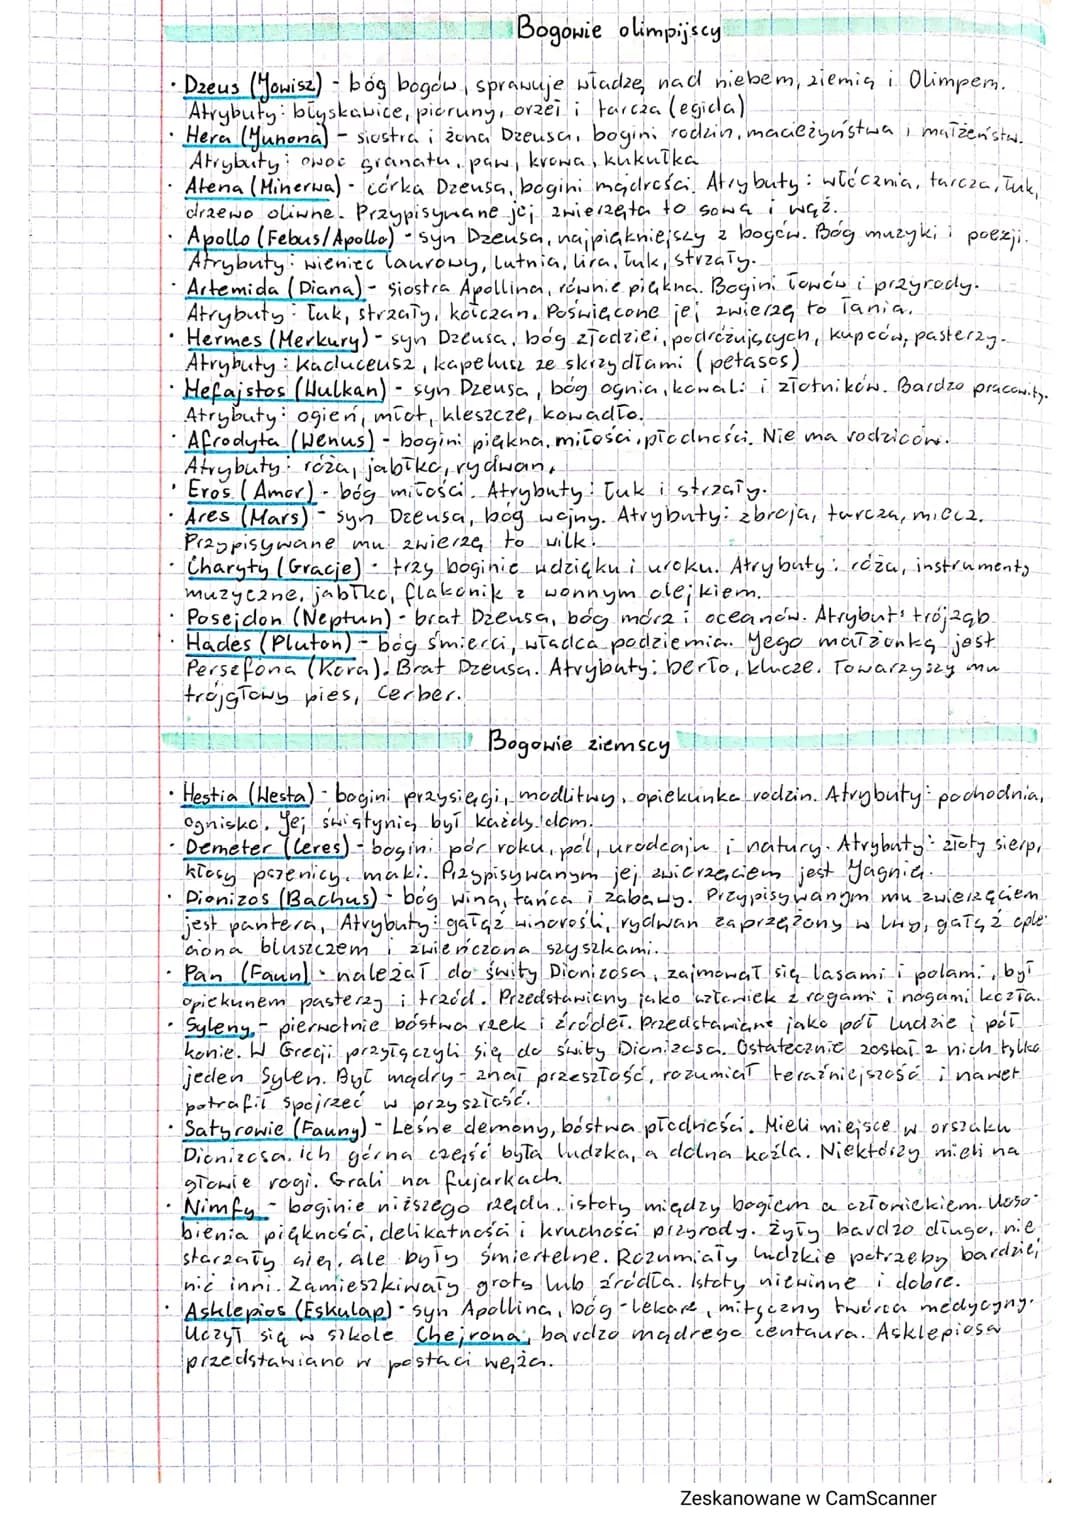 Bogowie olimpijscy
· Dzeus (Jowisz) - bóg bogów, sprawuje władzę nad niebem, ziemią i Olimpem.
Atrybuty: błyskawice, pioruny, orzeł i tarcza (egida)
· Hera (Junona) - siostra i żona Dzeusa, bogini rodzin, macieżyństwa i małżeństw.
Atrybuty: owoc granatu, paw, krowa, kukułka
· Atena (Minerwa) - córka Dzeusa, bogini mądrości. Atrybuty: włócznia, tarcza, łuk,
drzewo oliwne. Przypisywane jej zwierzęta to sowa i wąż.
· Apollo (Febus/Apollo) - syn Dzeusa, najpiękniejszy z bogów. Bóg muzyki i poezji.
Atrybuty: wieniec laurowy, lutnia, lira, łuk, strzały.
· Artemida (Diana) - siostra Apollina, równie piękna. Bogini łowów i przyrody.
Atrybuty: łuk, strzały, kołczan. Poświęcone jej zwierzę to łania.
· Hermes (Merkury) - syn Dzeusa, bóg złodziei, podróżujących, kupców, pasterzy.
Atrybuty: kaduceusz, kapelusz ze skrzydłami (petasos)
· Hefajstos (Wulkan) - syn Dzeusa, bóg ognia, kowali i złotników. Bardzo pracowity.
Atrybuty: ogień, młot, kleszcze, kowadło.
· Afrodyta (Wenus) - bogini piękna, miłości, płodności. Nie ma rodziców.
Atrybuty: róża, jabłko, rydwan.
· Eros (Amor) - bóg miłości. Atrybuty: łuk i strzały.
· Ares (Mars) - syn Dzeusa, bóg wojny. Atrybuty: zbroja, tarcza, miecz.
Przypisywane mu zwierzę to wilk.
· Charyty (Gracje) - trzy boginie wdzięku i uroku. Atrybuty: róża, instrumenty
muzyczne, jabłko, flakonik z wonnym olejkiem.
· Posejdon (Neptun) - brat Dzeusa, bóg mórz i oceanów. Atrybut: trójząb
· Hades (Pluton) - bóg śmierci, władca podziemia. Jego małżonką jest
Persefona (Kora). Brat Dzeusa. Atrybuty: berło, klucze. Towarzyszy mu
trójgłowy pies, Cerber.
Bogowie ziemscy
· Hestia (Westa) - bogini przysięgi, modlitwy, opiekunka rodzin. Atrybuty: pochodnia,
ognisko. Jej świątynią był każdy dom.
· Demeter (Ceres) - bogini pór roku, pól, urodzaju i natury. Atrybuty: złoty sierp,
kłosy pszenicy, maki. Przypisywanym jej zwierzęciem jest Jagnię.
· Dionizos (Bachus) - bóg wina, tańca i zabawy. Przypisywanym mu zwierzęciem
jest pantera, Atrybuty: gałąź winorośli, rydwan zaprzężony w lwy, gałąź ople-
ciona bluszczem i zwieńczona szyszkami.
· Pan (Faun) - należał do świty Dionizosa, zajmował się lasami i polami, był
opiekunem pasterzy i trzód. Przedstawiany jako człowiek z rogami i nogami kozła.
· Syleny - pierwotnie bóstwa rzek i źródeł. Przedstawiane jako pół ludzie i pół
konie. W Grecji przyłączyli się do świty Dionizosa. Ostatecznie został z nich tylko
jeden Sylen. Był mądry - znał przeszłość, rozumiał teraźniejszość i nawet
potrafił spojrzeć w przyszłość.
· Satyrowie (Fauny) - Leśne demony, bóstwa płodności. Mieli miejsce w orszaku
Dionizosa. ich górna część była ludzka, a dolna koźla. Niektórzy mieli na
głowie rogi. Grali na fujarkach.
· Nimfy - boginie niższego rzędu, istoty między bogiem a człowiekiem. Uoso-
bienia piękności, delikatności i kruchości przyrody. Żyły bardzo długo, nie
starzały się, ale były śmiertelne. Rozumiały ludzkie potrzeby bardziej
niż inni. Zamieszkiwały groty lub źródła. Istoty niewinne i dobre.
· Asklepios (Eskulap) - syn Apollina, bóg-lekarz, mityczny twórca medycyny.
Uczył się w szkole Chejrona, bardzo mądrego centaura. Asklepiosa
przedstawiano w postaci węża.
Zeskanowane w CamScanner